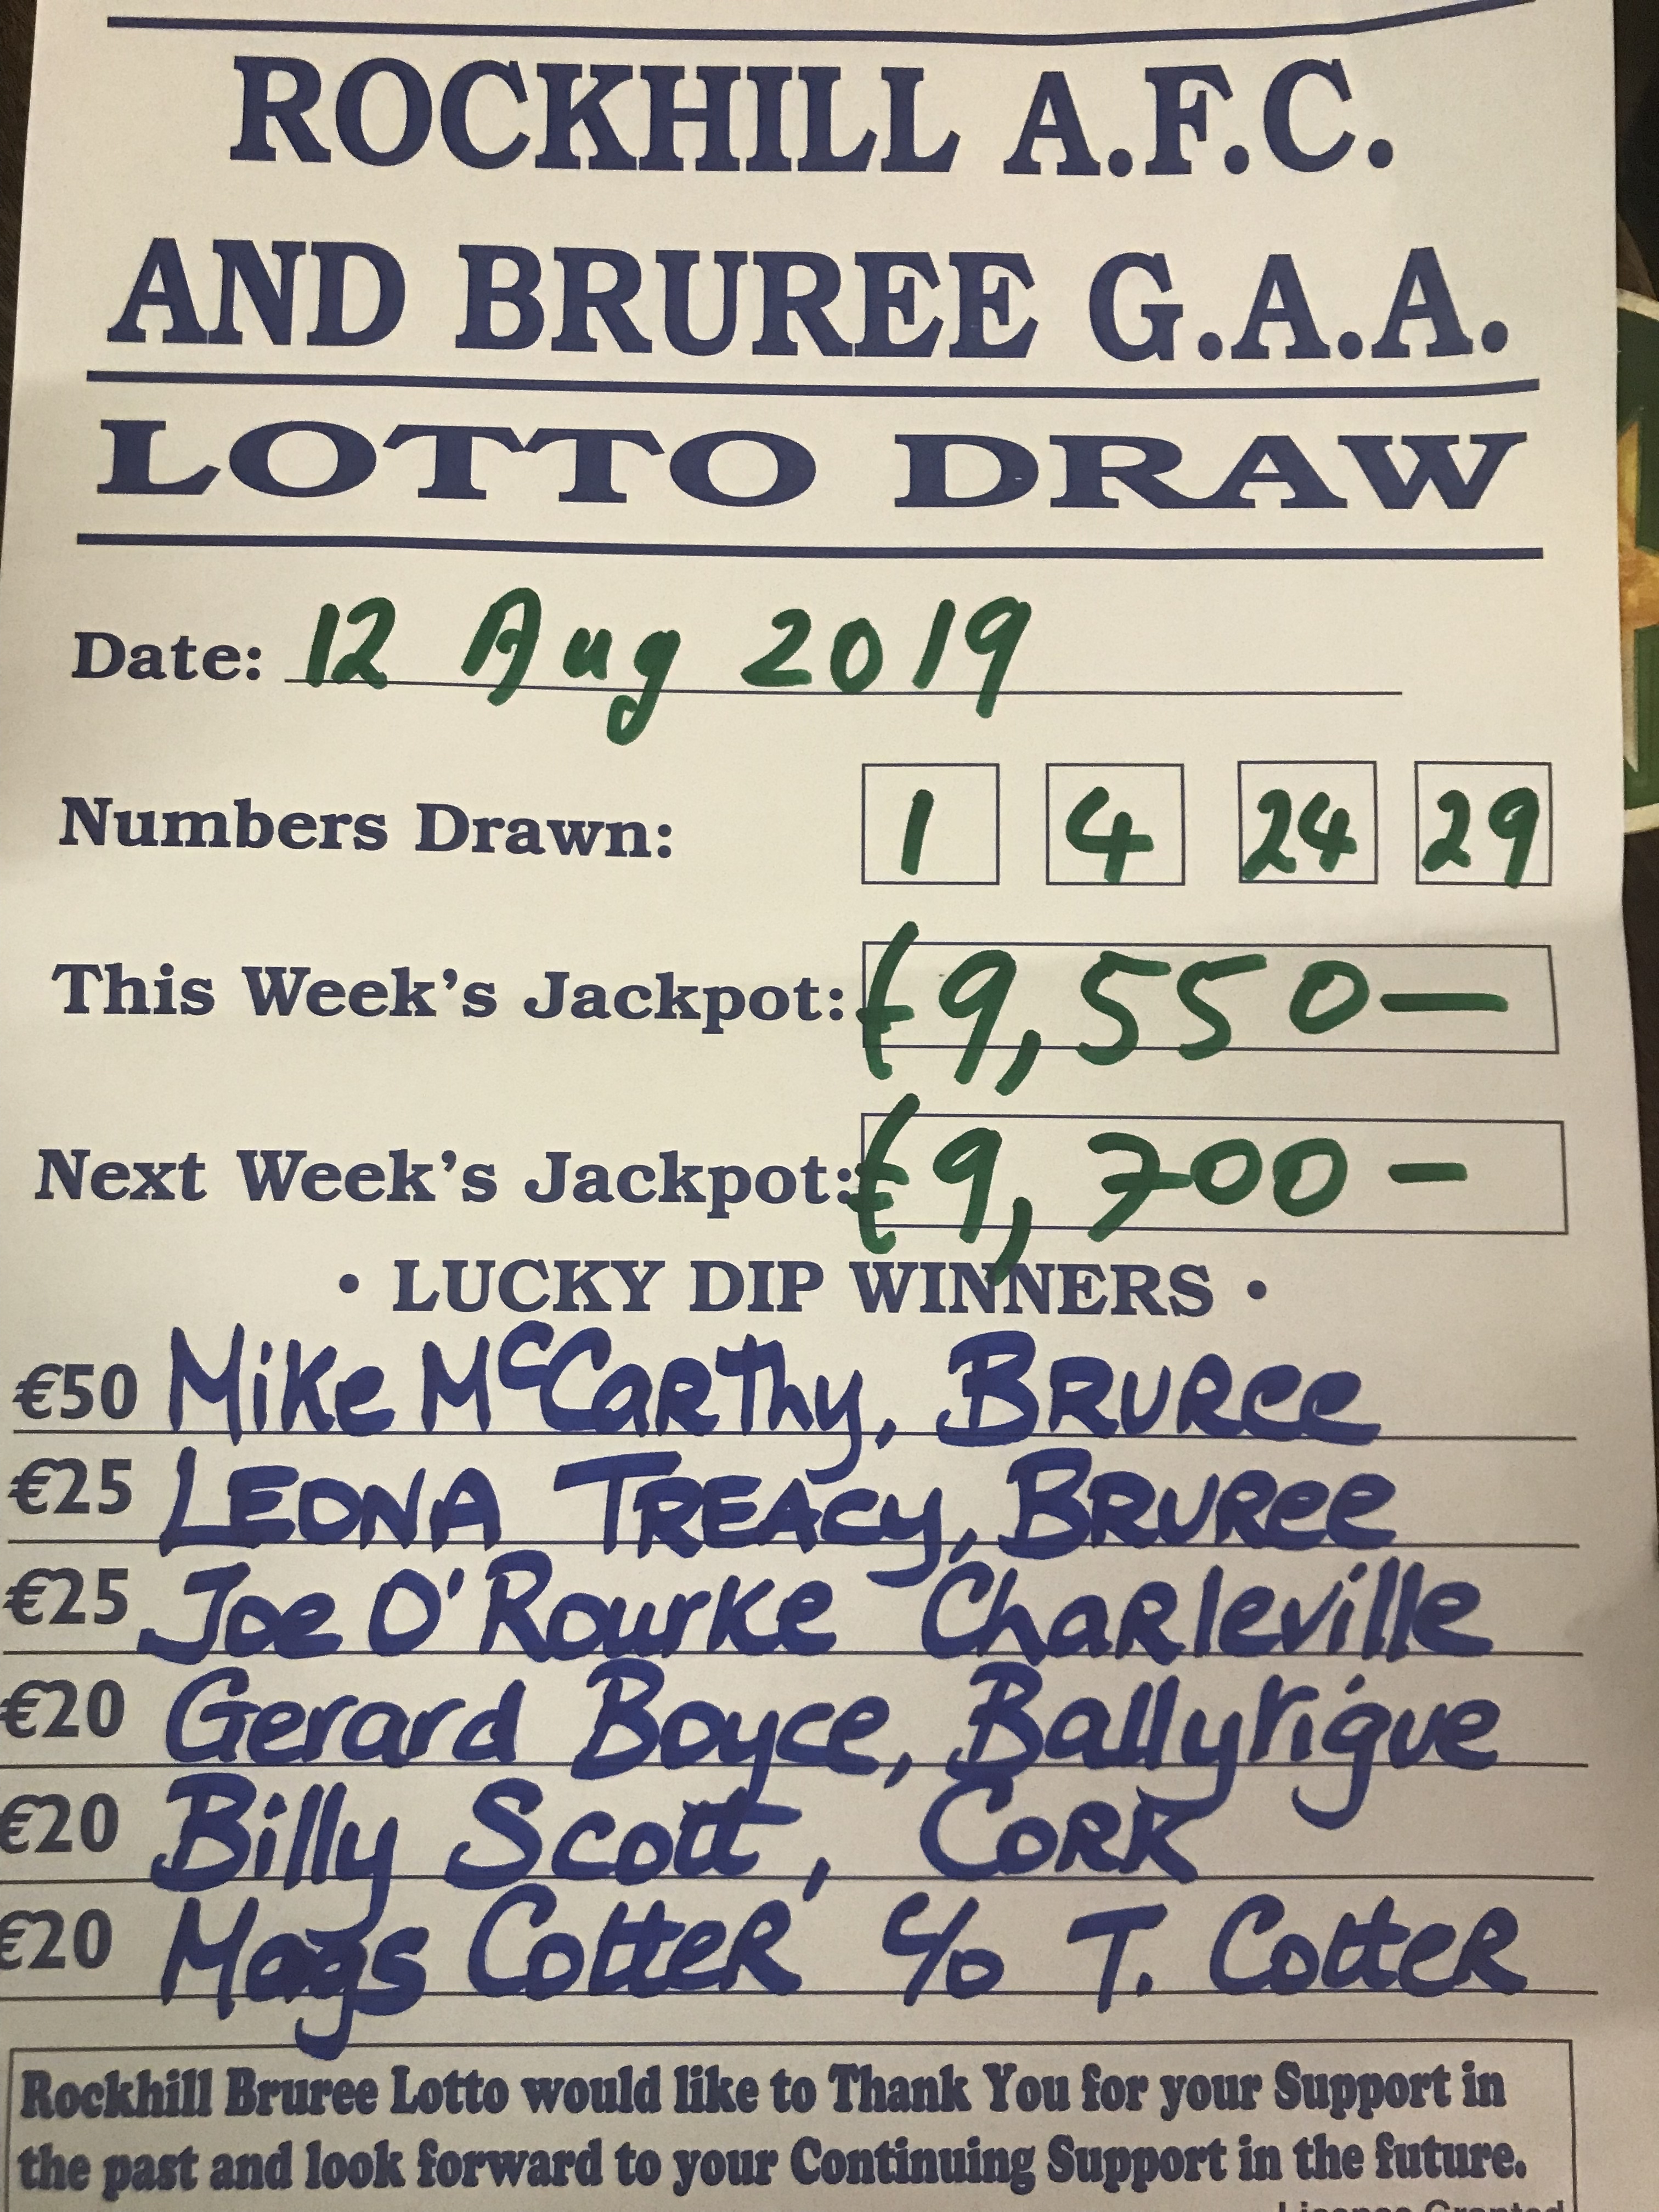 ROCKHILL A.F.C.
AND BRUREE G.A.A.
LOTTO DRAW
Date: 12 Aug 2019
Numbers Drawn: 1 4 24 29
This Week's Jackpot: €9,550—
Next Week's Jackpot: €9,700—
• LUCKY DIP WINNERS •
€50 Mike McCarthy, Bruree
€25 LEONA TREACY, BRURee
€25 Joe O'Rourke Charleville
€20 Gerard Boyce, Ballyrigue
€20 Billy Scott, CORK
€20 Mags Cotter c/o T. Cotter
Rockhill Bruree Lotto would like to Thank You for your Support in
the past and look forward to your Continuing Support in the future.
License Granted